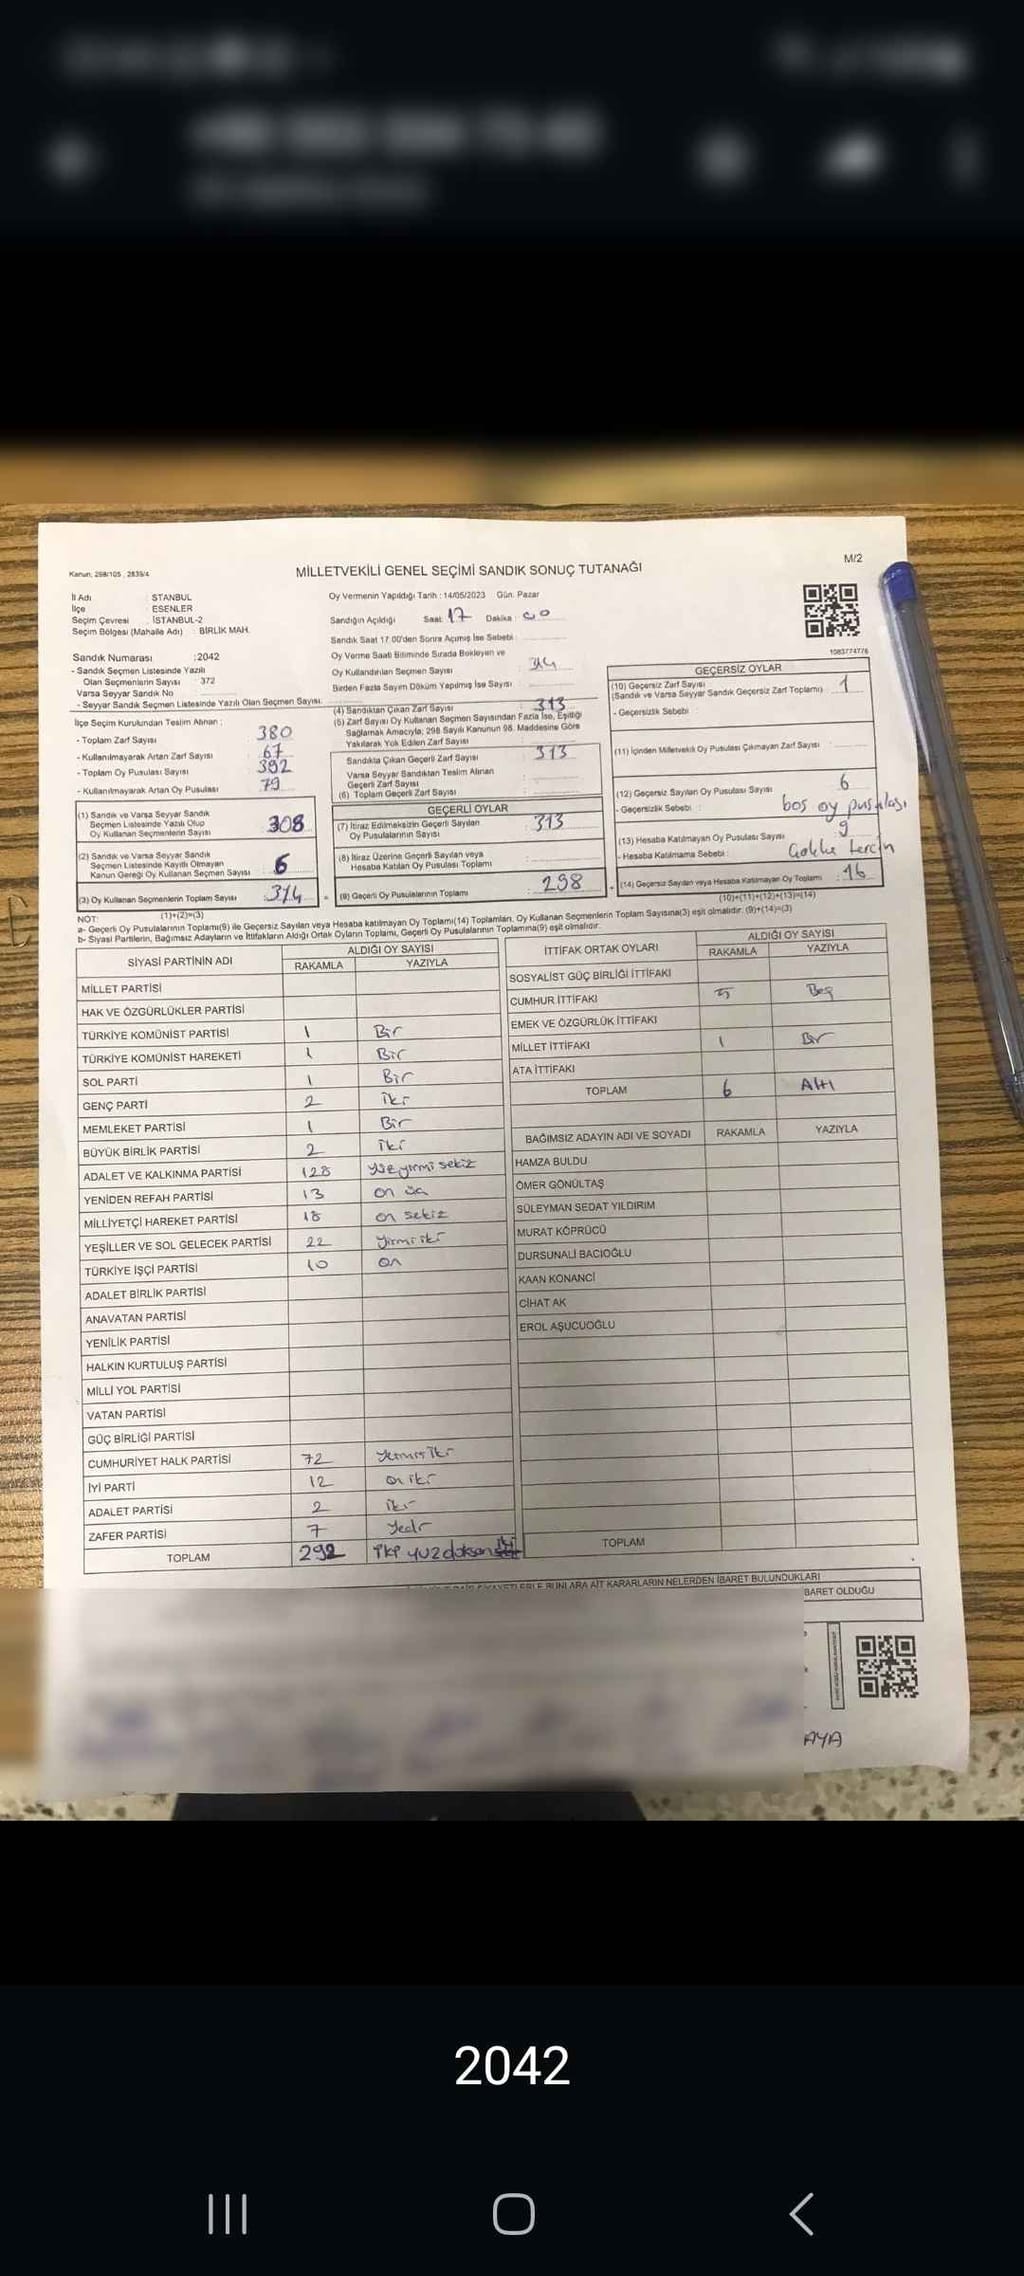 Kanun: 298/105 , 2839/4
M/2
MİLLETVEKİLİ GENEL SEÇİMİ SANDIK SONUÇ TUTANAĞI
İl Adı : İSTANBUL
İlçe : ESENLER
Seçim Çevresi : İSTANBUL-2
Seçim Bölgesi (Mahalle Adı) : BİRLİK MAH.
Sandık Numarası :2042
- Sandık Seçmen Listesinde Yazılı
Olan Seçmenlerin Sayısı : 372
Varsa Seyyar Sandık No
- Seyyar Sandık Seçmen Listesinde Yazılı Olan Seçmen Sayısı:
Oy Vermenin Yapıldığı Tarih : 14/05/2023 Gün: Pazar
Sandığın Açıldığı Saat: 17 Dakika : 00
Sandık Saat 17.00'den Sonra Açımış İse Sebebi :
Oy Verme Saati Bitiminde Sırada Bekleyen ve
Oy Kullandırılan Seçmen Sayısı
Birden Fazla Sayım Döküm Yapılmış İse Sayısı
1083774776
İlçe Seçim Kurulundan Teslim Alınan :
- Toplam Zarf Sayısı : 380
- Kullanılmayarak Artan Zarf Sayısı : 67
- Toplam Oy Pusulası Sayısı : 392
- Kullanılmayarak Artan Oy Pusulası : 79
(1) Sandık ve Varsa Seyyar Sandık
Seçmen Listesinde Yazılı Olup
Oy Kullanan Seçmenlerin Sayısı : 308
(2) Sandık ve Varsa Seyyar Sandık
Seçmen Listesinde Kayıtlı Olmayan
Kanun Gereği Oy Kullanan Seçmen Sayısı : 6
(3) Oy Kullanan Seçmenlerin Toplam Sayısı : 314
(1)+(2)=(3)
(4) Sandıktan Çıkan Zarf Sayısı : 313
(5) Zarf Sayısı Oy Kullanan Seçmen Sayısından Fazla İse, Eşitliği
Sağlamak Amacıyla; 298 Sayılı Kanunun 98. Maddesine Göre
Yakılarak Yok Edilen Zarf Sayısı
Sandıkta Çıkan Geçerli Zarf Sayısı : 313
Varsa Seyyar Sandıktan Teslim Alınan
Geçerli Zarf Sayısı
(6) Toplam Geçerli Zarf Sayısı :
GEÇERLİ OYLAR
(7) İtiraz Edilmeksizin Geçerli Sayılan
Oy Pusulalarının Sayısı : 313
(8) İtiraz Üzerine Geçerli Sayılan veya
Hesaba Katılan Oy Pusulası Toplamı
(9) Geçerli Oy Pusulalarının Toplamı : 298
GEÇERSİZ OYLAR
(10) Geçersiz Zarf Sayısı
(Sandık ve Varsa Seyyar Sandık Geçersiz Zarf Toplamı) : 1
- Geçersizlik Sebebi :
(11) İçinden Milletvekili Oy Pusulası Çıkmayan Zarf Sayısı :
(12) Geçersiz Sayılan Oy Pusulası Sayısı : 6
- Geçersizlik Sebebi : bos oy pusulası
(13) Hesaba Katılmayan Oy Pusulası Sayısı : 9
- Hesaba Katılmama Sebebi :
(14) Geçersiz Sayılan veya Hesaba Katılmayan Oy Toplamı : 16
(10)+(11)+(12)+(13)=(14)
NOT:
a- Geçerli Oy Pusulalarının Toplamı(9) ile Geçersiz Sayılan veya Hesaba katılmayan Oy Toplamı(14) Toplamları, Oy Kullanan Seçmenlerin Toplam Sayısına(3) eşit olmalıdır. (9)+(14)=(3)
b- Siyasi Partilerin, Bağımsız Adayların ve İttifakların Aldığı Ortak Oyların Toplamı, Geçerli Oy Pusulalarının Toplamına(9) eşit olmalıdır.
SİYASİ PARTİNİN ADI ALDIĞI OY SAYISI
RAKAMLA YAZIYLA
MİLLET PARTİSİ
HAK VE ÖZGÜRLÜKLER PARTİSİ
TÜRKİYE KOMÜNİST PARTİSİ 1 Bir
TÜRKİYE KOMÜNİST HAREKETİ 1 Bir
SOL PARTİ 1 Bir
GENÇ PARTİ 2 iki
MEMLEKET PARTİSİ 1 Bir
BÜYÜK BİRLİK PARTİSİ 2 iki
ADALET VE KALKINMA PARTİSİ 128 yüzyirmi sekiz
YENİDEN REFAH PARTİSİ 13 on üç
MİLLİYETÇİ HAREKET PARTİSİ 18 on sekiz
YEŞİLLER VE SOL GELECEK PARTİSİ 22 yirmi iki
TÜRKİYE İŞÇİ PARTİSİ 10 on
ADALET BİRLİK PARTİSİ
ANAVATAN PARTİSİ
YENİLİK PARTİSİ
HALKIN KURTULUŞ PARTİSİ
MİLLİ YOL PARTİSİ
VATAN PARTİSİ
GÜÇ BİRLİĞİ PARTİSİ
CUMHURİYET HALK PARTİSİ 72 yetmiş iki
İYİ PARTİ 12 on iki
ADALET PARTİSİ 2 iki
ZAFER PARTİSİ 7 Yedi
TOPLAM 292 iki yuz doksan
İTTİFAK ORTAK OYLARI ALDIĞI OY SAYISI
RAKAMLA YAZIYLA
SOSYALİST GÜÇ BİRLİĞİ İTTİFAKI
CUMHUR İTTİFAKI 5 Beş
EMEK VE ÖZGÜRLÜK İTTİFAKI
MİLLET İTTİFAKI 1 Bir
ATA İTTİFAKI
TOPLAM 6 Altı
BAĞIMSIZ ADAYIN ADI VE SOYADI RAKAMLA YAZIYLA
HAMZA BULDU
ÖMER GÖNÜLTAŞ
SÜLEYMAN SEDAT YILDIRIM
MURAT KÖPRÜCÜ
DURSUNALİ BACIOĞLU
KAAN KONANCİ
CİHAT AK
EROL AŞUCUOĞLU
TOPLAM
BUNLARA AİT KARARLARIN NELERDEN İBARET BULUNDUKLARI
BARET OLDUĞU
AYA
2042